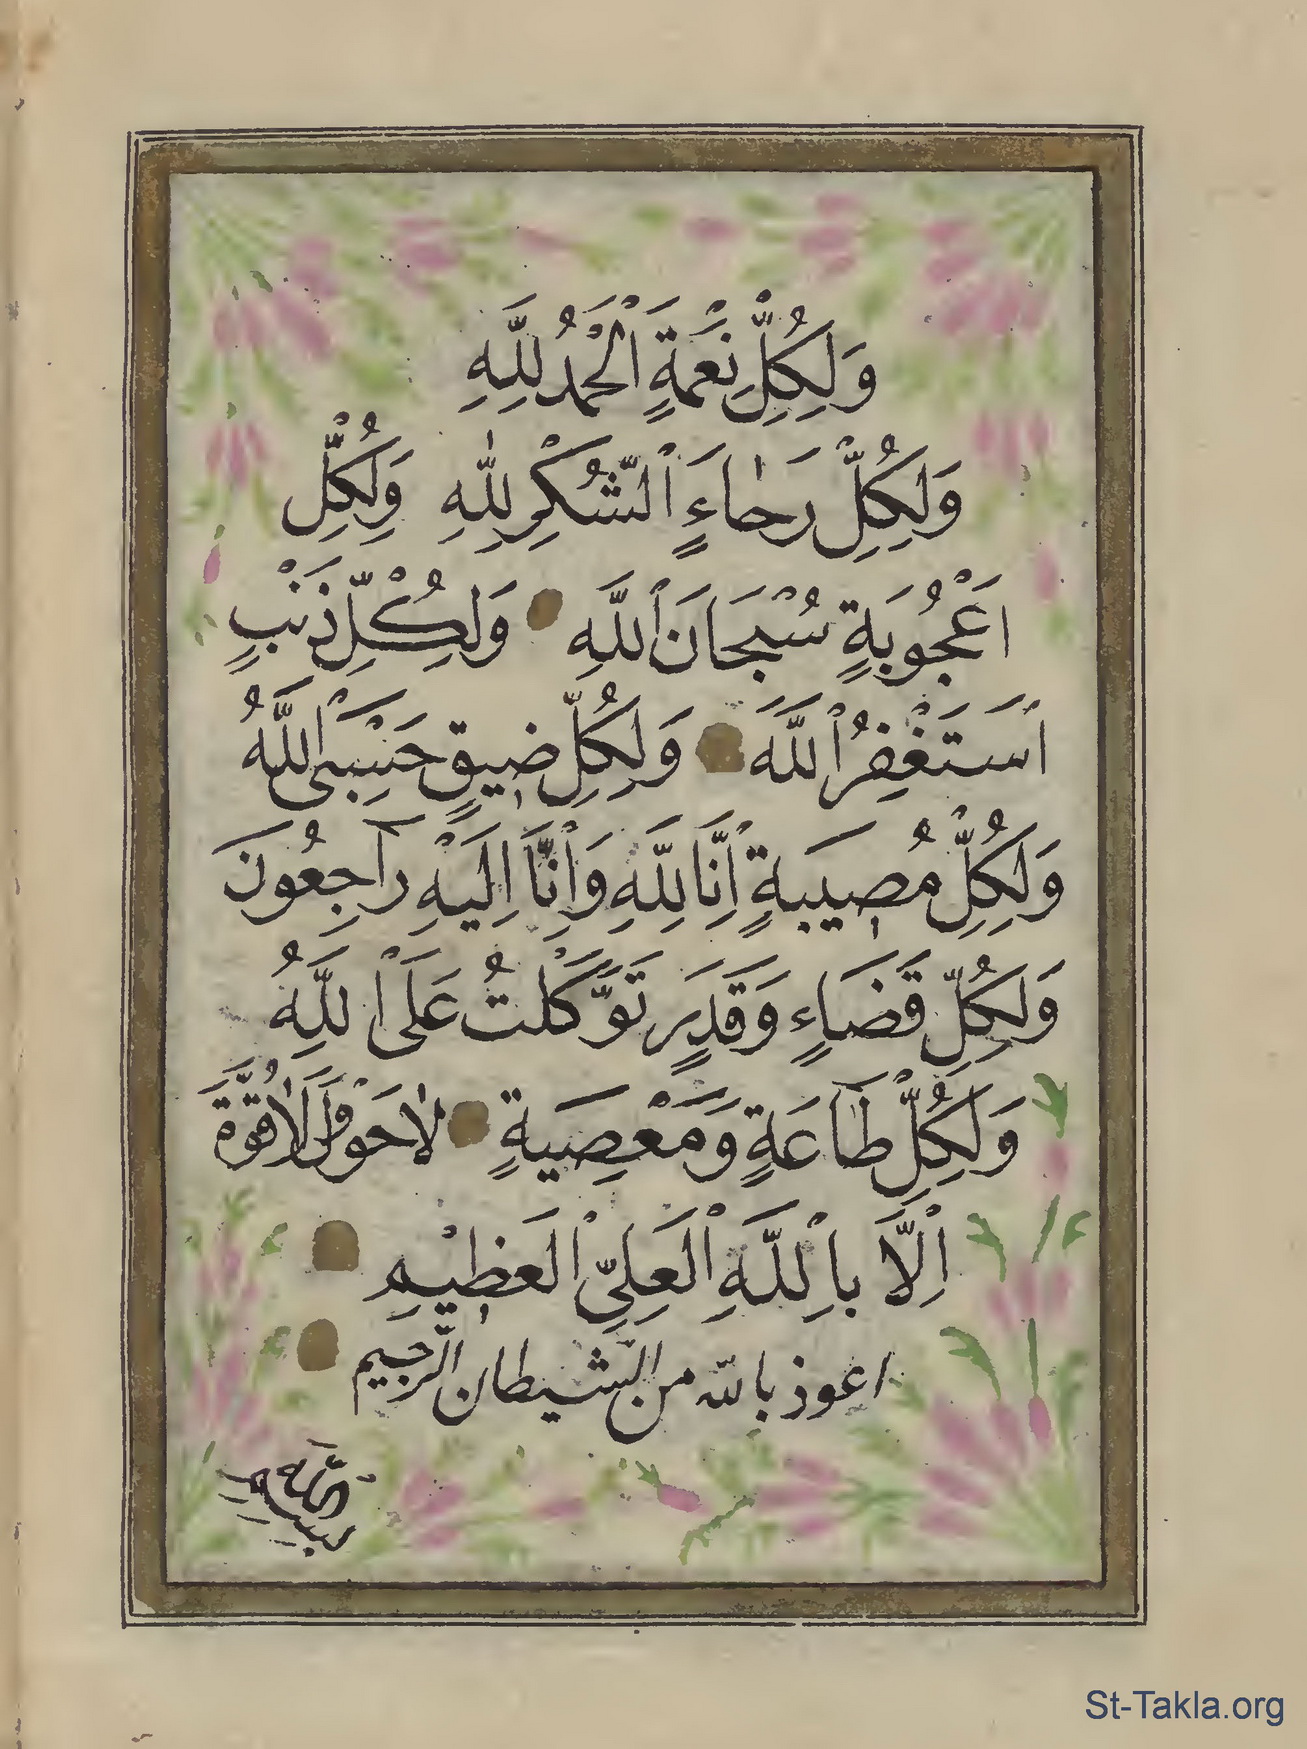 وَلِكُلِّ نِعْمَةٍ اَلْحَمْدُ لِلَّهِ
وَلِكُلِّ رَخَاءٍ اَلشُّكْرِ لِلّٰهِ وَلِكُلِّ
اَعْجُوبَةٍ سُبْحَانَ اللَّهِ وَلِكُلِّ ذَنْبٍ
اَسْتَغْفِرُ اللَّهَ وَلِكُلِّ ضِيقٍ حَسْبِىَ اللَّهُ
وَلِكُلِّ مُصِيبَةٍ اِنَّا لِلَّهِ وَاِنَّا اِلَيْهِ رَاجِعُونَ
وَلِكُلِّ قَضَاءٍ وَقَدَرٍ تَوَكَّلْتُ عَلَى اللَّهِ
وَلِكُلِّ طَاعَةٍ وَمَعْصِيَةٍ لَا حَوْلَ وَلَا قُوَّةَ
اِلَّا بِاللَّهِ الْعَلِىِّ الْعَظِيْمِ
اعوذ بالله من الشيطان الرجيم
بسم الله
St-Takla.org